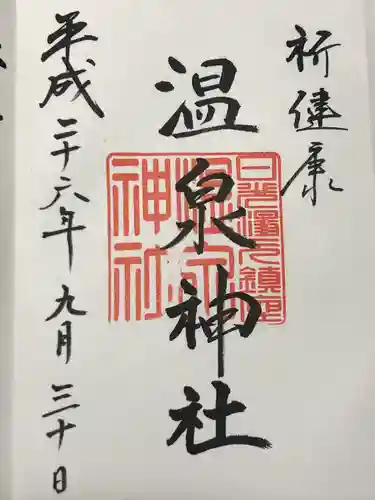 祈健康
温泉神社
平成二十六年九月三十日
日光湯元鎮座
温泉
神社